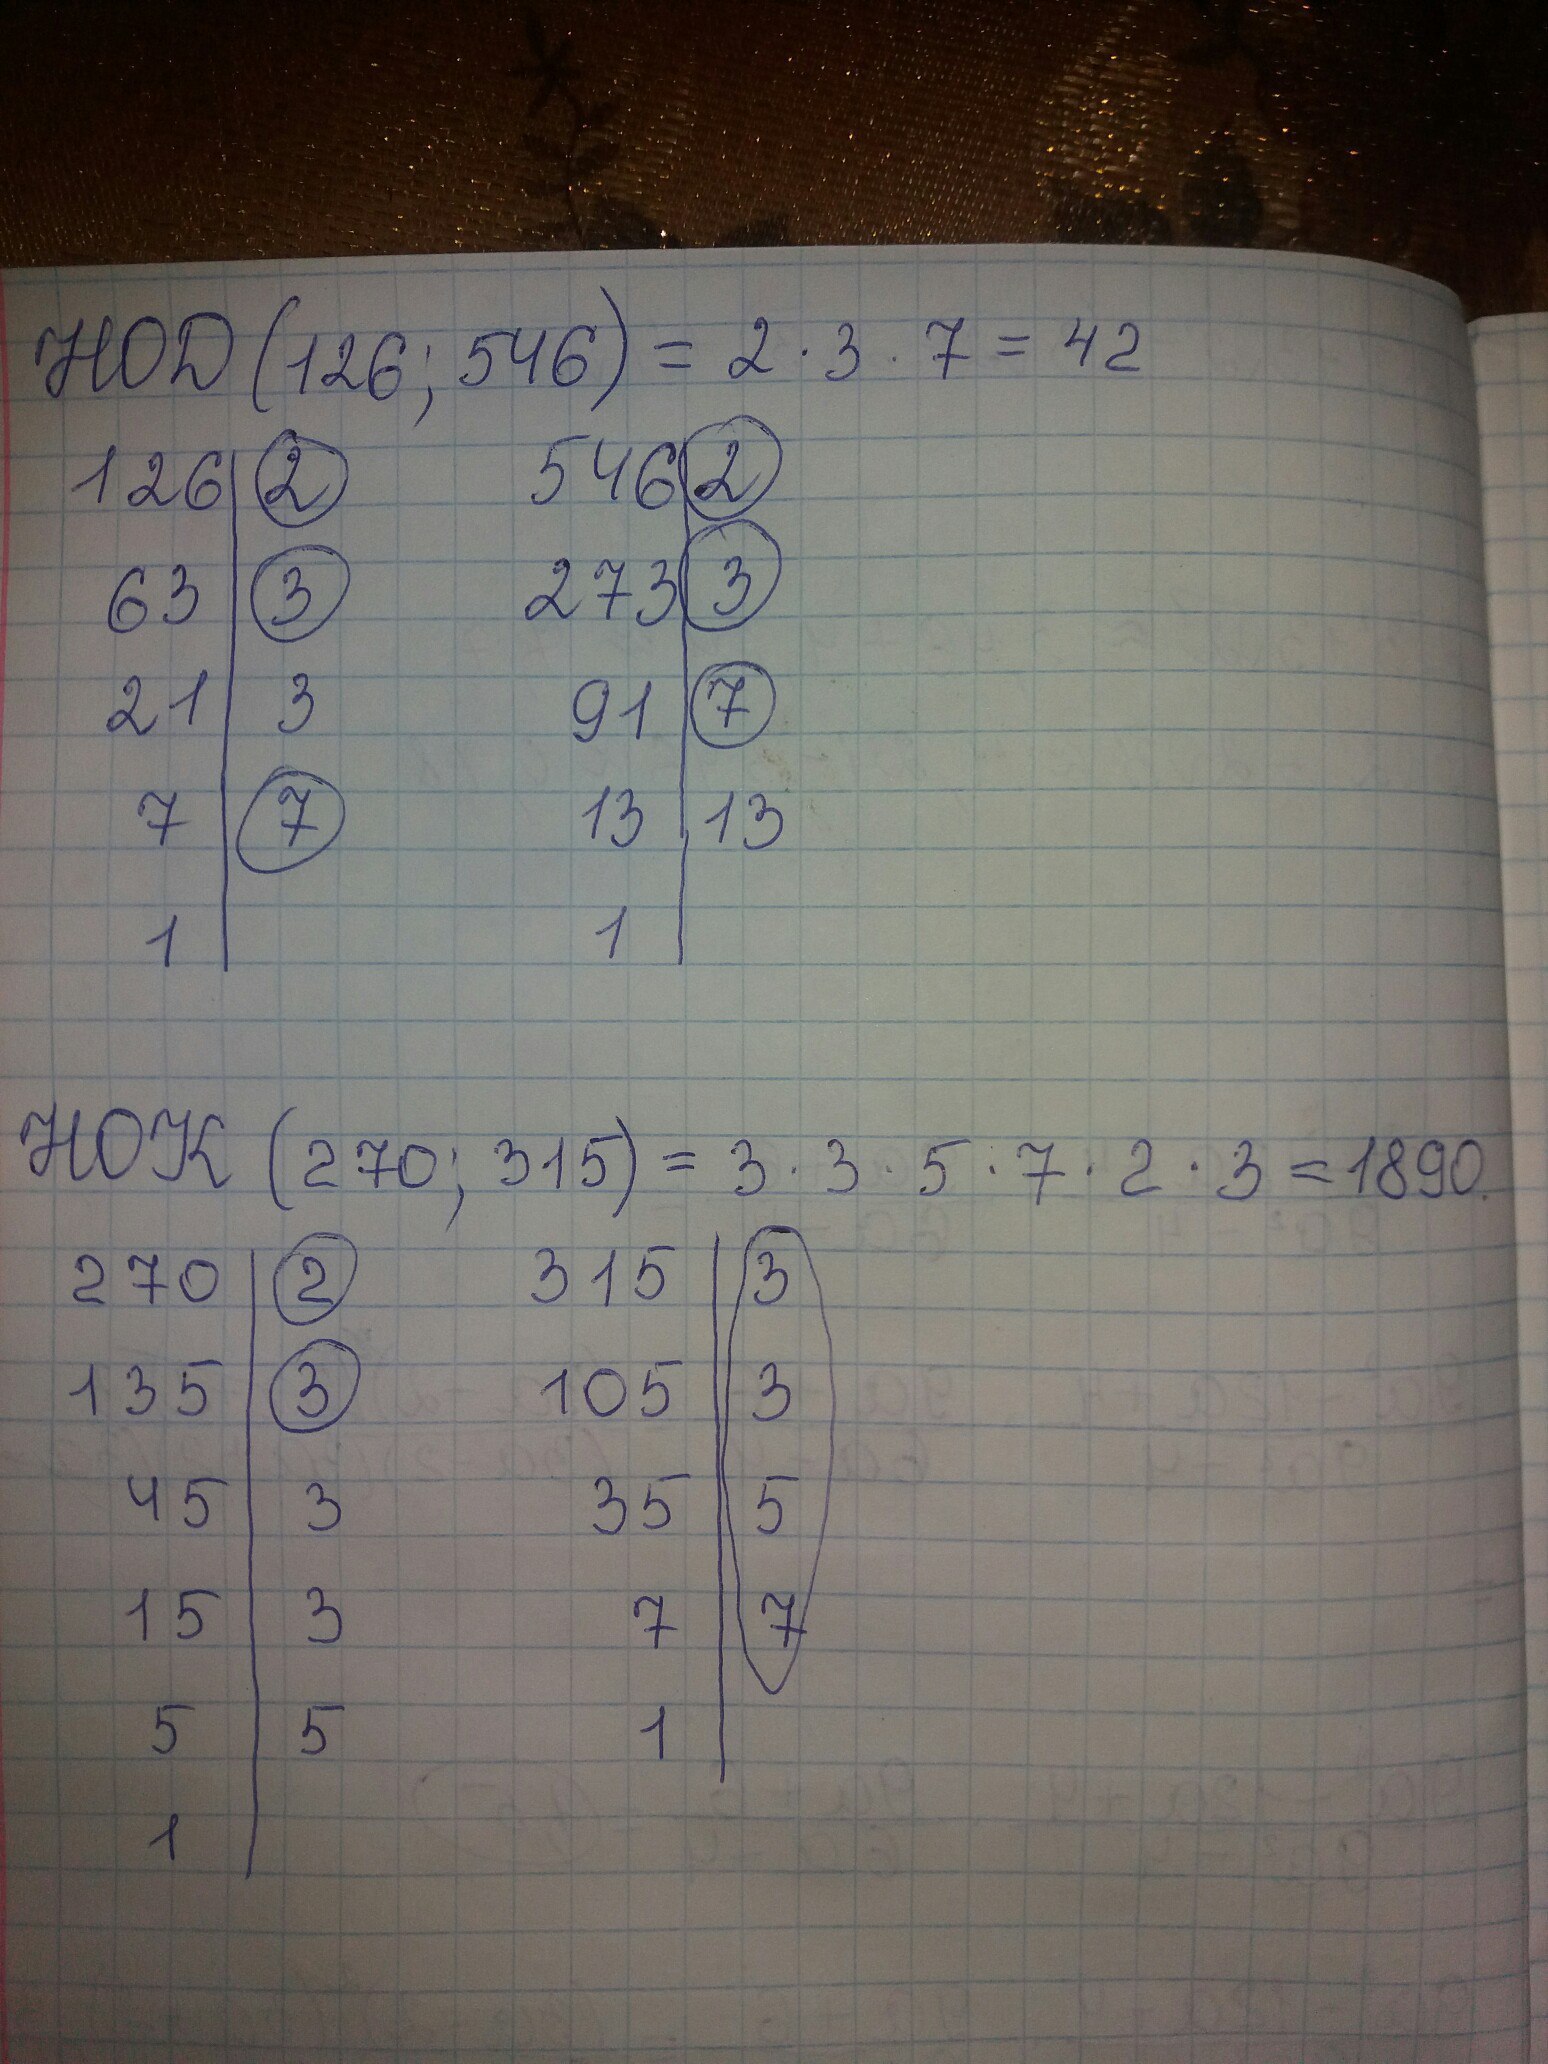 НОД (126; 546) = 2 · 3 · 7 = 42
126 | 2 546 | 2
63 | 3 273 | 3
21 | 3 91 | 7
7 | 7 13 | 13
1 | 1 |
НОК (270; 315) = 3 · 3 · 5 · 7 · 2 · 3 = 1890.
270 | 2 315 | 3
135 | 3 105 | 3
45 | 3 35 | 5
15 | 3 7 | 7
5 | 5 1 |
1 |